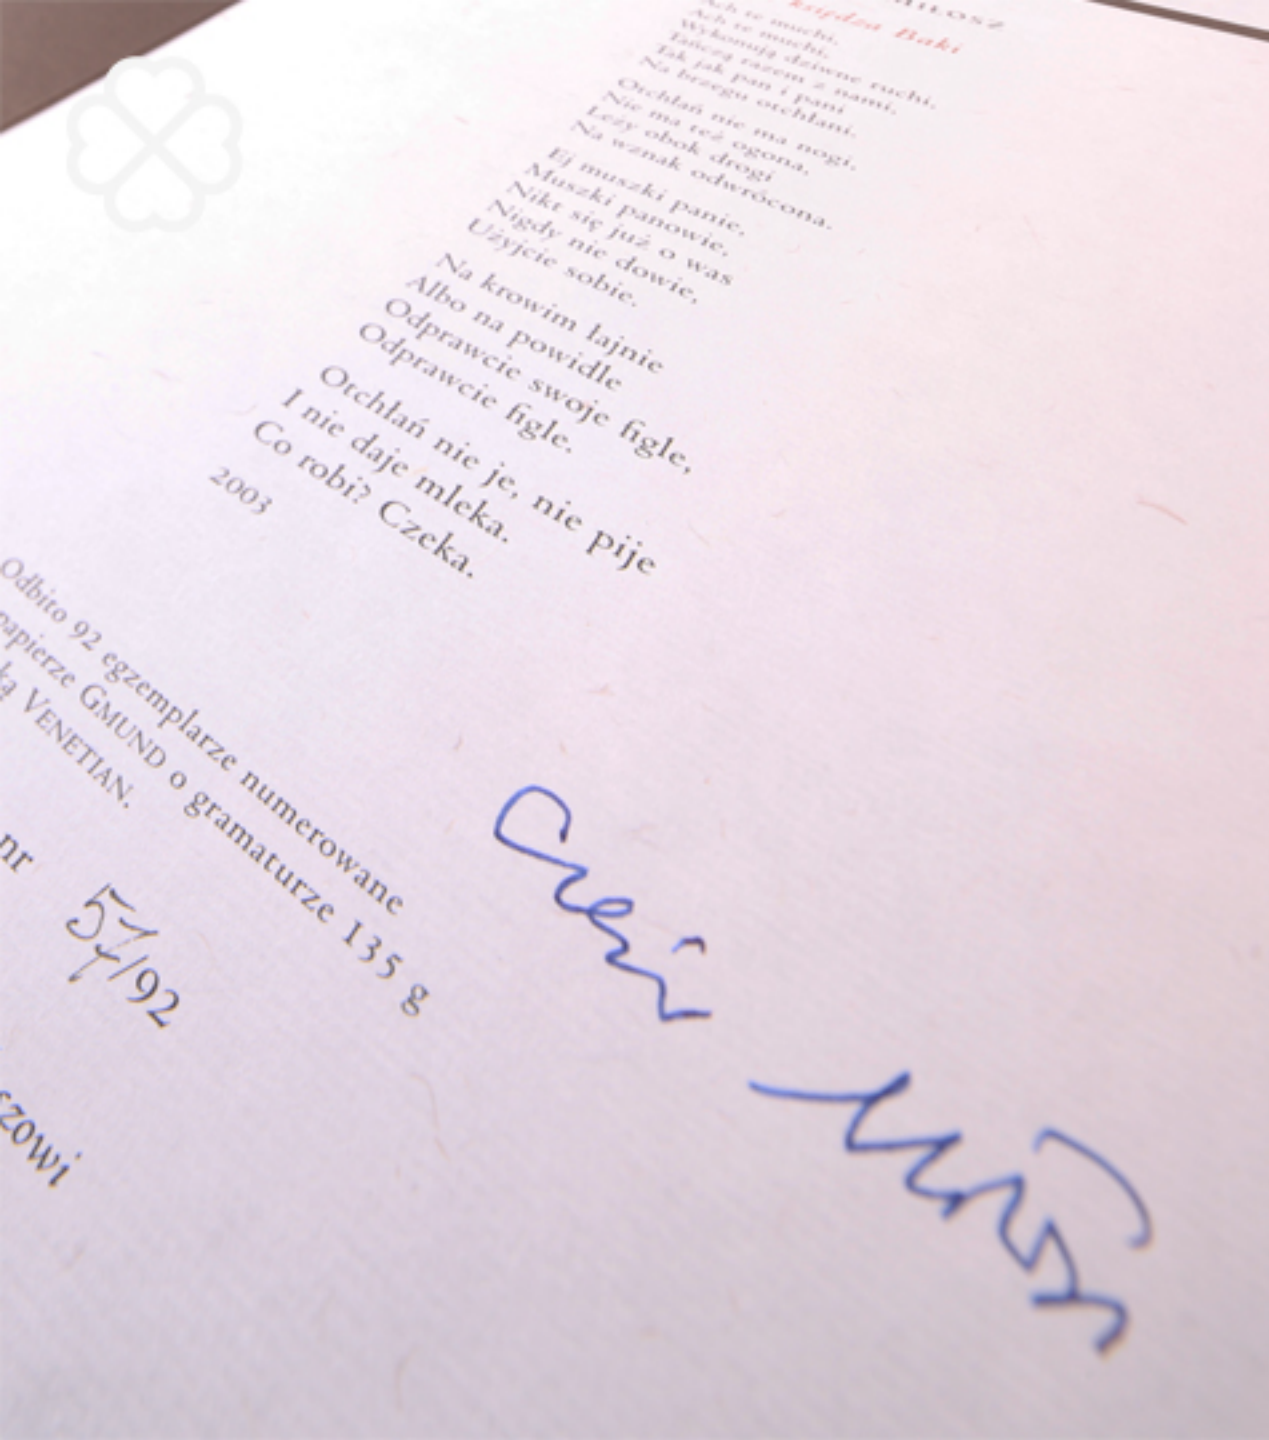 MIŁOSZ
księdza Baki
Ach te muchi,
Ach te muchi,
Wykonują dziwne ruchi,
Tańczą razem z nami,
Tak jak pan i pani
Na brzegu otchłani.
Otchłań nie ma nogi,
Nie ma też ogona,
Leży obok drogi
Na wznak odwrócona.
Ej muszki panie,
Muszki panowie,
Nikt się już o was
Nigdy nie dowie,
Użyjcie sobie.
Na krowim łajnie
Albo na powidle
Odprawcie swoje figle,
Odprawcie figle.
Otchłań nie je, nie pije
I nie daje mleka.
Co robi? Czeka.
2003
Odbito 92 egzemplarze numerowane
papierze GMUND o gramaturze 135 g
ką VENETIAN.
nr 57/92
szowi
Czesław Miłosz